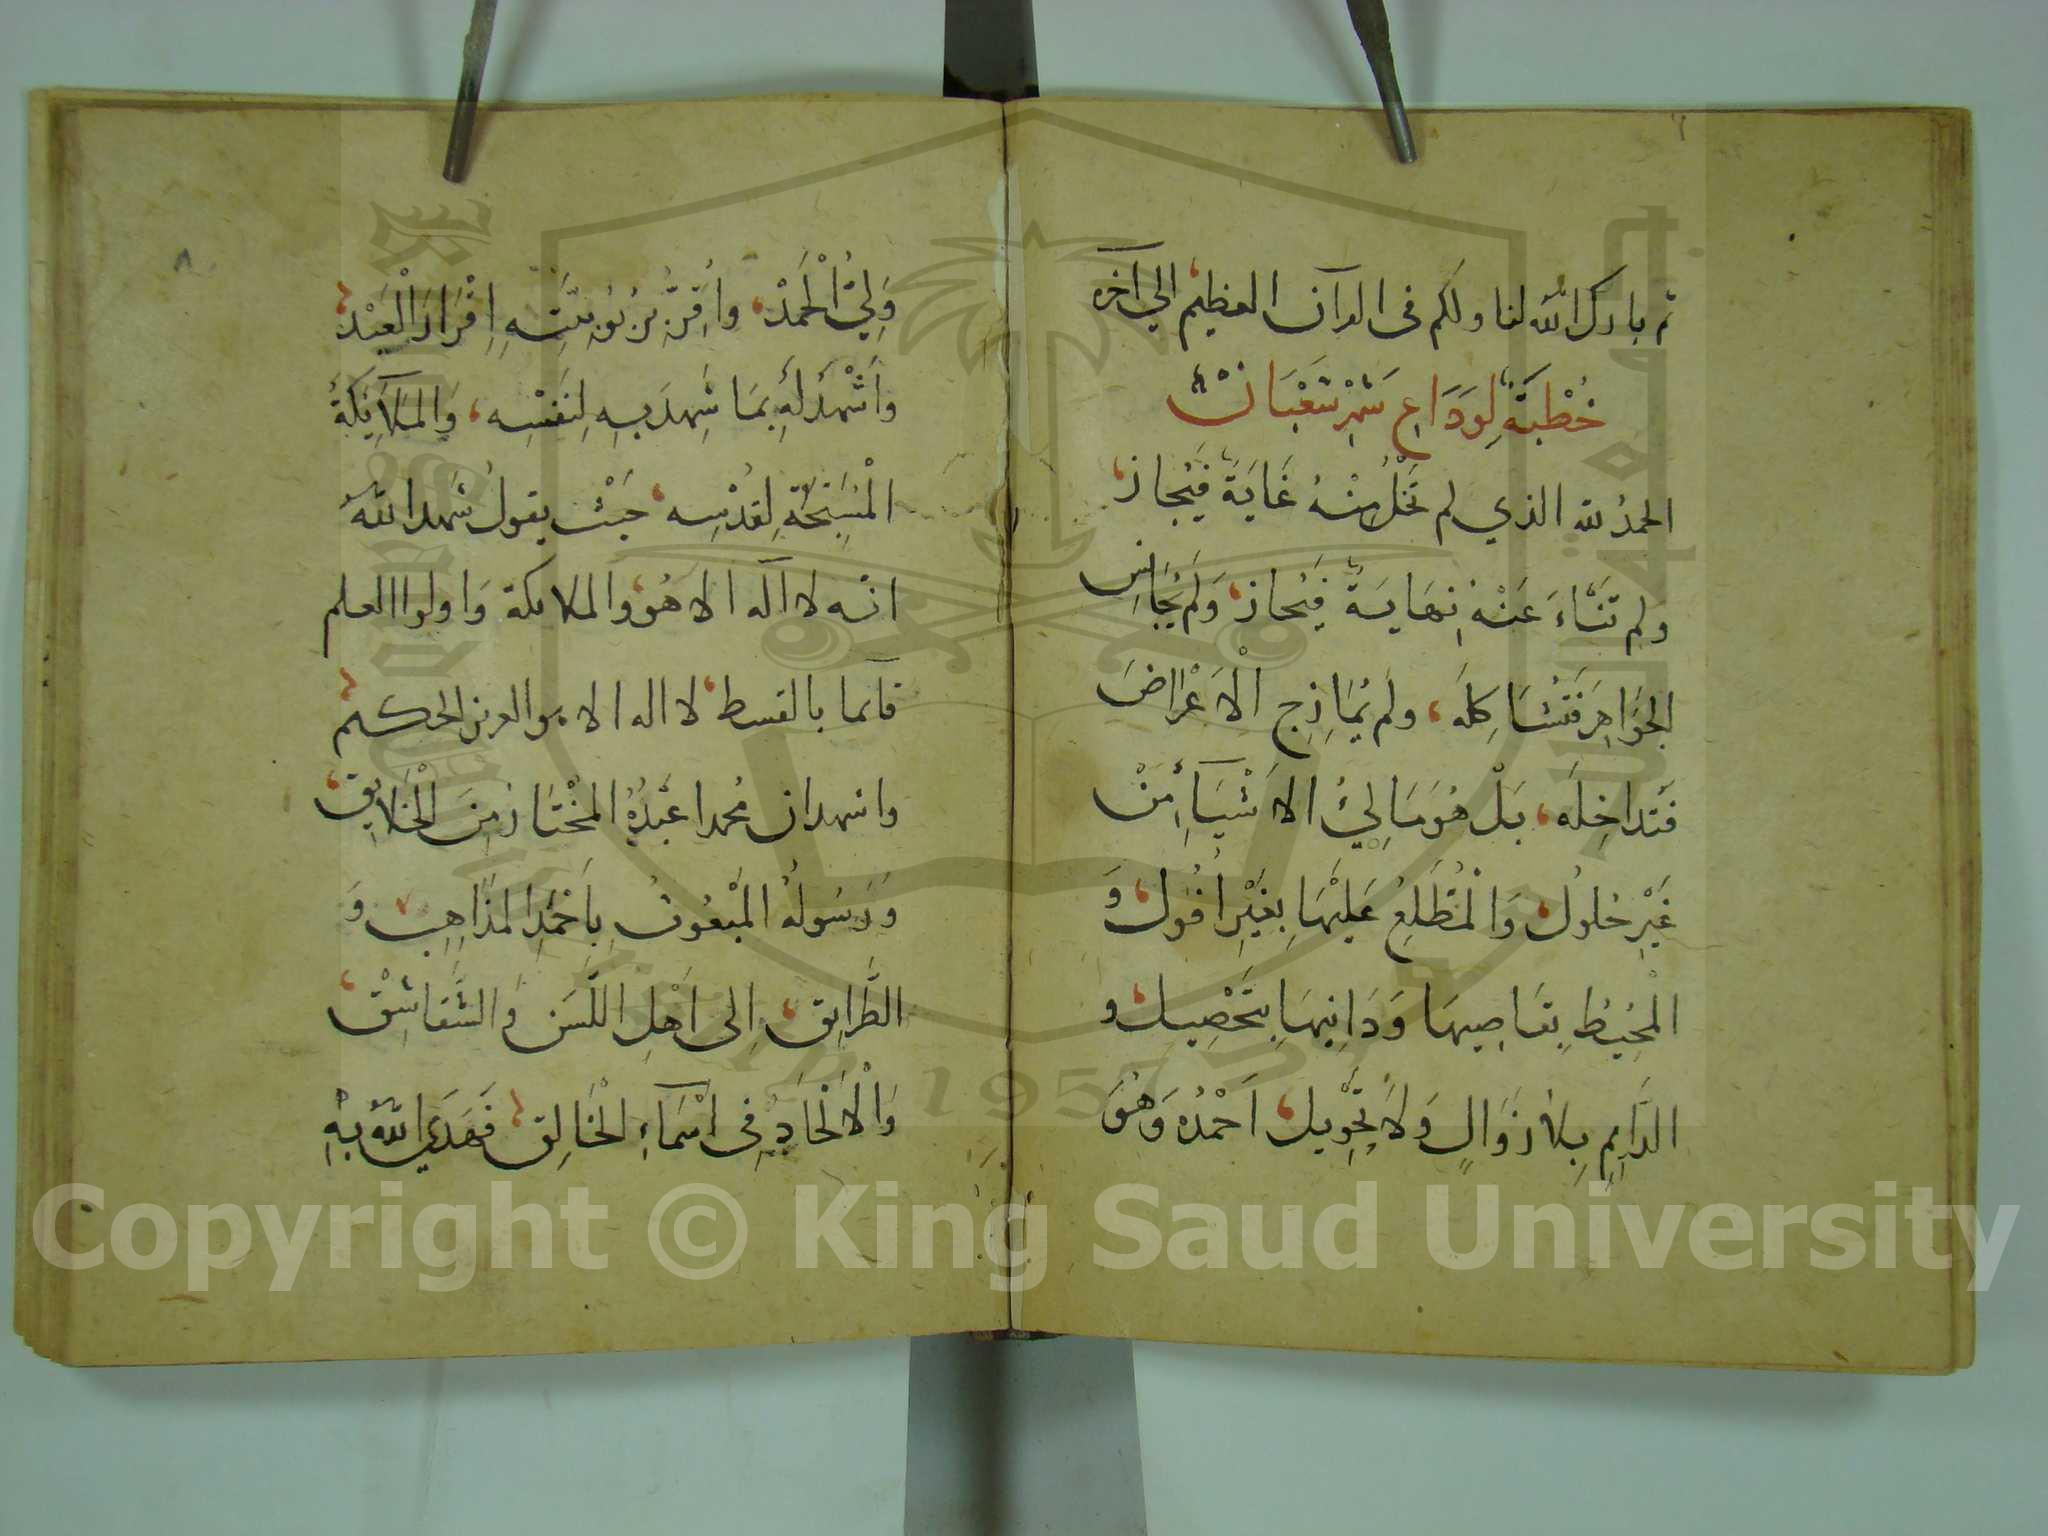 ثم بارك الله لنا ولكم فى القرآن العظيم الي آخره
خُطْبَةٌ لِوَدَاعِ شَهْرِ شَعْبَانَ
الحمدُ لله الذي لم تَخْلُ مِنْهُ غَايَةٌ فَيُجاز
ولم تَنْاءَ عَنْهُ نِهَايَةٌ فَيُحاز وَلَم يُجَانِسِ
الجَوَاهِرَ فَتُشَاكِلَه، ولم يُمَازِجِ الْاَعْرَاضَ
فَتُداخِلَه، بَلْ هُوَ مَالِئُ الاَشْيَآءِ مِنْ
غَيْرِ حُلولٍ وَالْمُطَّلِعُ عَلَيْهَا بِغَيْرِ اُفُولٍ وَ
الْمُحِيْطُ بِقَاصِيهَا وَدَانِيْهَا بِتَحْصِيلٍ و
الدَّايِمِ بِلَا زَوَالٍ وَلَا تَحْوِيلٍ اَحْمَدُهُ وَهُوَ
وَلِيُّ الْحَمْدْ، واُقِرُّ بِرُبُوبِيَّتِهِ اِقْرَارَ الْعَبْدْ
وَاَشْهَدُ لَهُ بِمَا شَهِدَ بِهِ لِنَفْسِه، وَالمَلَآئِكَةُ
الْمُسَبِّحَةُ لِقُدْسِه، حَيْثُ يقولُ شهد اللهُ
انه لا اله الا هُوَ والملايكة وَاولوا العلم
قآئما بالقسط لا اله الا هو العزيز الحكيم
واشهد ان محمدا عَبْدُهُ المُخْتَارُ مِنَ الْخَلَايِق
وَرَسُولُهُ المَبْعُوثُ بِاَحْمَدِ المَذَاهِبِ وَ
الطَّرَايِق، اِلى اَهْلِ اللَّسَنِ وَالشَّقَاشِقْ
وَالْاَلْحَادِ فِى اَسْمَآءِ الْخَالِق فَهَدَي اللهُ بِهِ
Copyright © King Saud University
1957